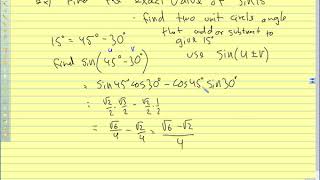 Find the exact value of sin15°
find two unit circle angles
that add or subtract to
give 15°
15° = 45° - 30°
u v
use sin(u ± v)
find sin(45° - 30°)
= sin45° cos30° - cos45° sin30°
= √2/2 · √3/2 - √2/2 · 1/2
= √6/4 - √2/4 = √6 - √2/4